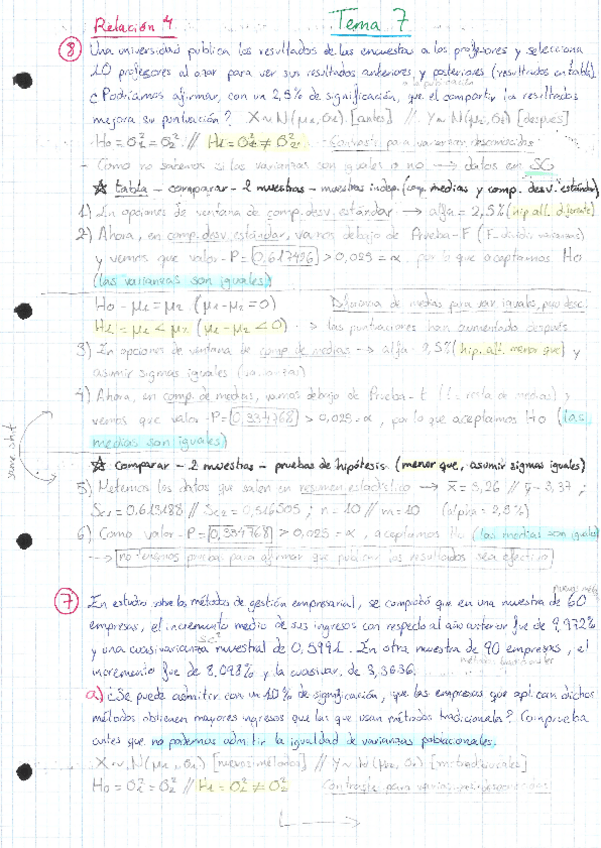 Relación 4 Tema 7
8 Una universidad publica los resultados de las encuestas a los profesores y selecciona
10 profesores al azar para ver sus resultados anteriores y posteriores (resultados en tabla)
a la publicación
¿Podríamos afirmar, con un 2,5% de significación, que el compartir los resultados
mejora su puntuación? X~N(μ1, σ1) [antes] // Y~N(μ2, σ2) [después]
H0 = σ1² = σ2² // H1 = σ1² ≠ σ2² para varianzas desconocidas
- Como no sabemos si las varianzas son iguales o no → datos en SG
☆ tabla - comparar - 2 muestras - muestras indep. (comp. medias y comp. desv. estándar)
1) En opciones de ventana de comp. desv. estándar → alfa = 2,5% (hip. alt. diferente)
2) Ahora, en comp. desv. estándar, vamos debajo de Prueba-F
y vemos que valor-P = 0,617426 > 0,025 = α, por lo que aceptamos H0
(las varianzas son iguales)
H0 = μ1 = μ2 (μ1-μ2 = 0) Diferencia de medias para var. iguales, pero desc.
H1 = μ1 < μ2 (μ1-μ2 < 0) → las puntuaciones han aumentado después
3) En opciones de ventana de comp. de medias → alfa 2,5% (hip. alt. menor que) y
asumir sigmas iguales
4) Ahora, en comp. de medias, vamos debajo de Prueba-t
vemos que valor-P = 0,334768 > 0,025 = α, por lo que aceptamos H0 (las
medias son iguales)
same shit
☆ comparar - 2 muestras - pruebas de hipótesis (menor que, asumir sigmas iguales)
5) Metemos los datos que salen en resumen estadístico → x̄ = 3,26 // ȳ = 3,37 ;
Sc1 = 0,613188 // Sc2 = 0,516505 ; n = 10 // m = 10 (alpha = 2,5%)
6) Como valor-P = 0,334768 > 0,025 = α, aceptamos H0 (las medias son iguales)
→ no tenemos prueba para afirmar que publicar los resultados sea efectivo
7 En estudio sobre los métodos de gestión empresarial, se comprobó que en una muestra de 60
empresas, el incremento medio de sus ingresos con respecto al año anterior fue de 9,972%
Sc²
y una cuasivarianza muestral de 0,5991. En otra muestra de 90 empresas, el
incremento fue de 8,098% y la cuasivar. de 3,3636.
a) ¿Se puede admitir, con un 10% de significación, que las empresas que aplican dichos
métodos obtienen mayores ingresos que las que usan métodos tradicionales? Comprueba
antes que no podemos admitir la igualdad de varianzas poblacionales.
X~N(μ1, σ1) [nuevos métodos] // Y~N(μ2, σ2) [met. tradicionales]
H0 = σ1² = σ2² // H1 = σ1² ≠ σ2² Contraste para